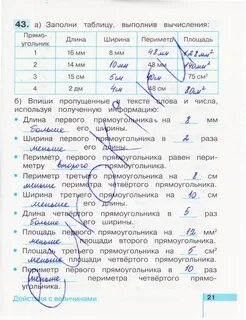 43. а) Заполни таблицу, выполнив вычисления:
Прямоугольник Длина Ширина Периметр Площадь
1 16 мм 8 мм 48 мм 128 мм²
2 14 мм 10 мм 48 мм 140 мм²
3 15 см 5 см 40 см 75 см²
4 2 дм 4 см 48 см 80 см²
б) Впиши пропущенные в тексте слова и числа,
используя полученную информацию:
• Длина первого прямоугольника на 8 мм
больше его ширины.
• Ширина первого прямоугольника в 2 раза
меньше его длины.
• Периметр первого прямоугольника равен пери-
метру второго прямоугольника.
• Периметр третьего прямоугольника на 8 см
меньше периметра четвёртого прямоугольника.
• Ширина третьего прямоугольника на 10 см
меньше его длины.
• Длина четвёртого прямоугольника в 5 раз
больше его ширины.
• Площадь первого прямоугольника на 12 мм²
меньше площади второго прямоугольника.
• Площадь третьего прямоугольника на 5 см²
меньше площади четвёртого прямоугольника.
• Периметр первого прямоугольника в 10 раз
меньше периметра четвёртого прямо-
угольника.
Действия с величинами
21